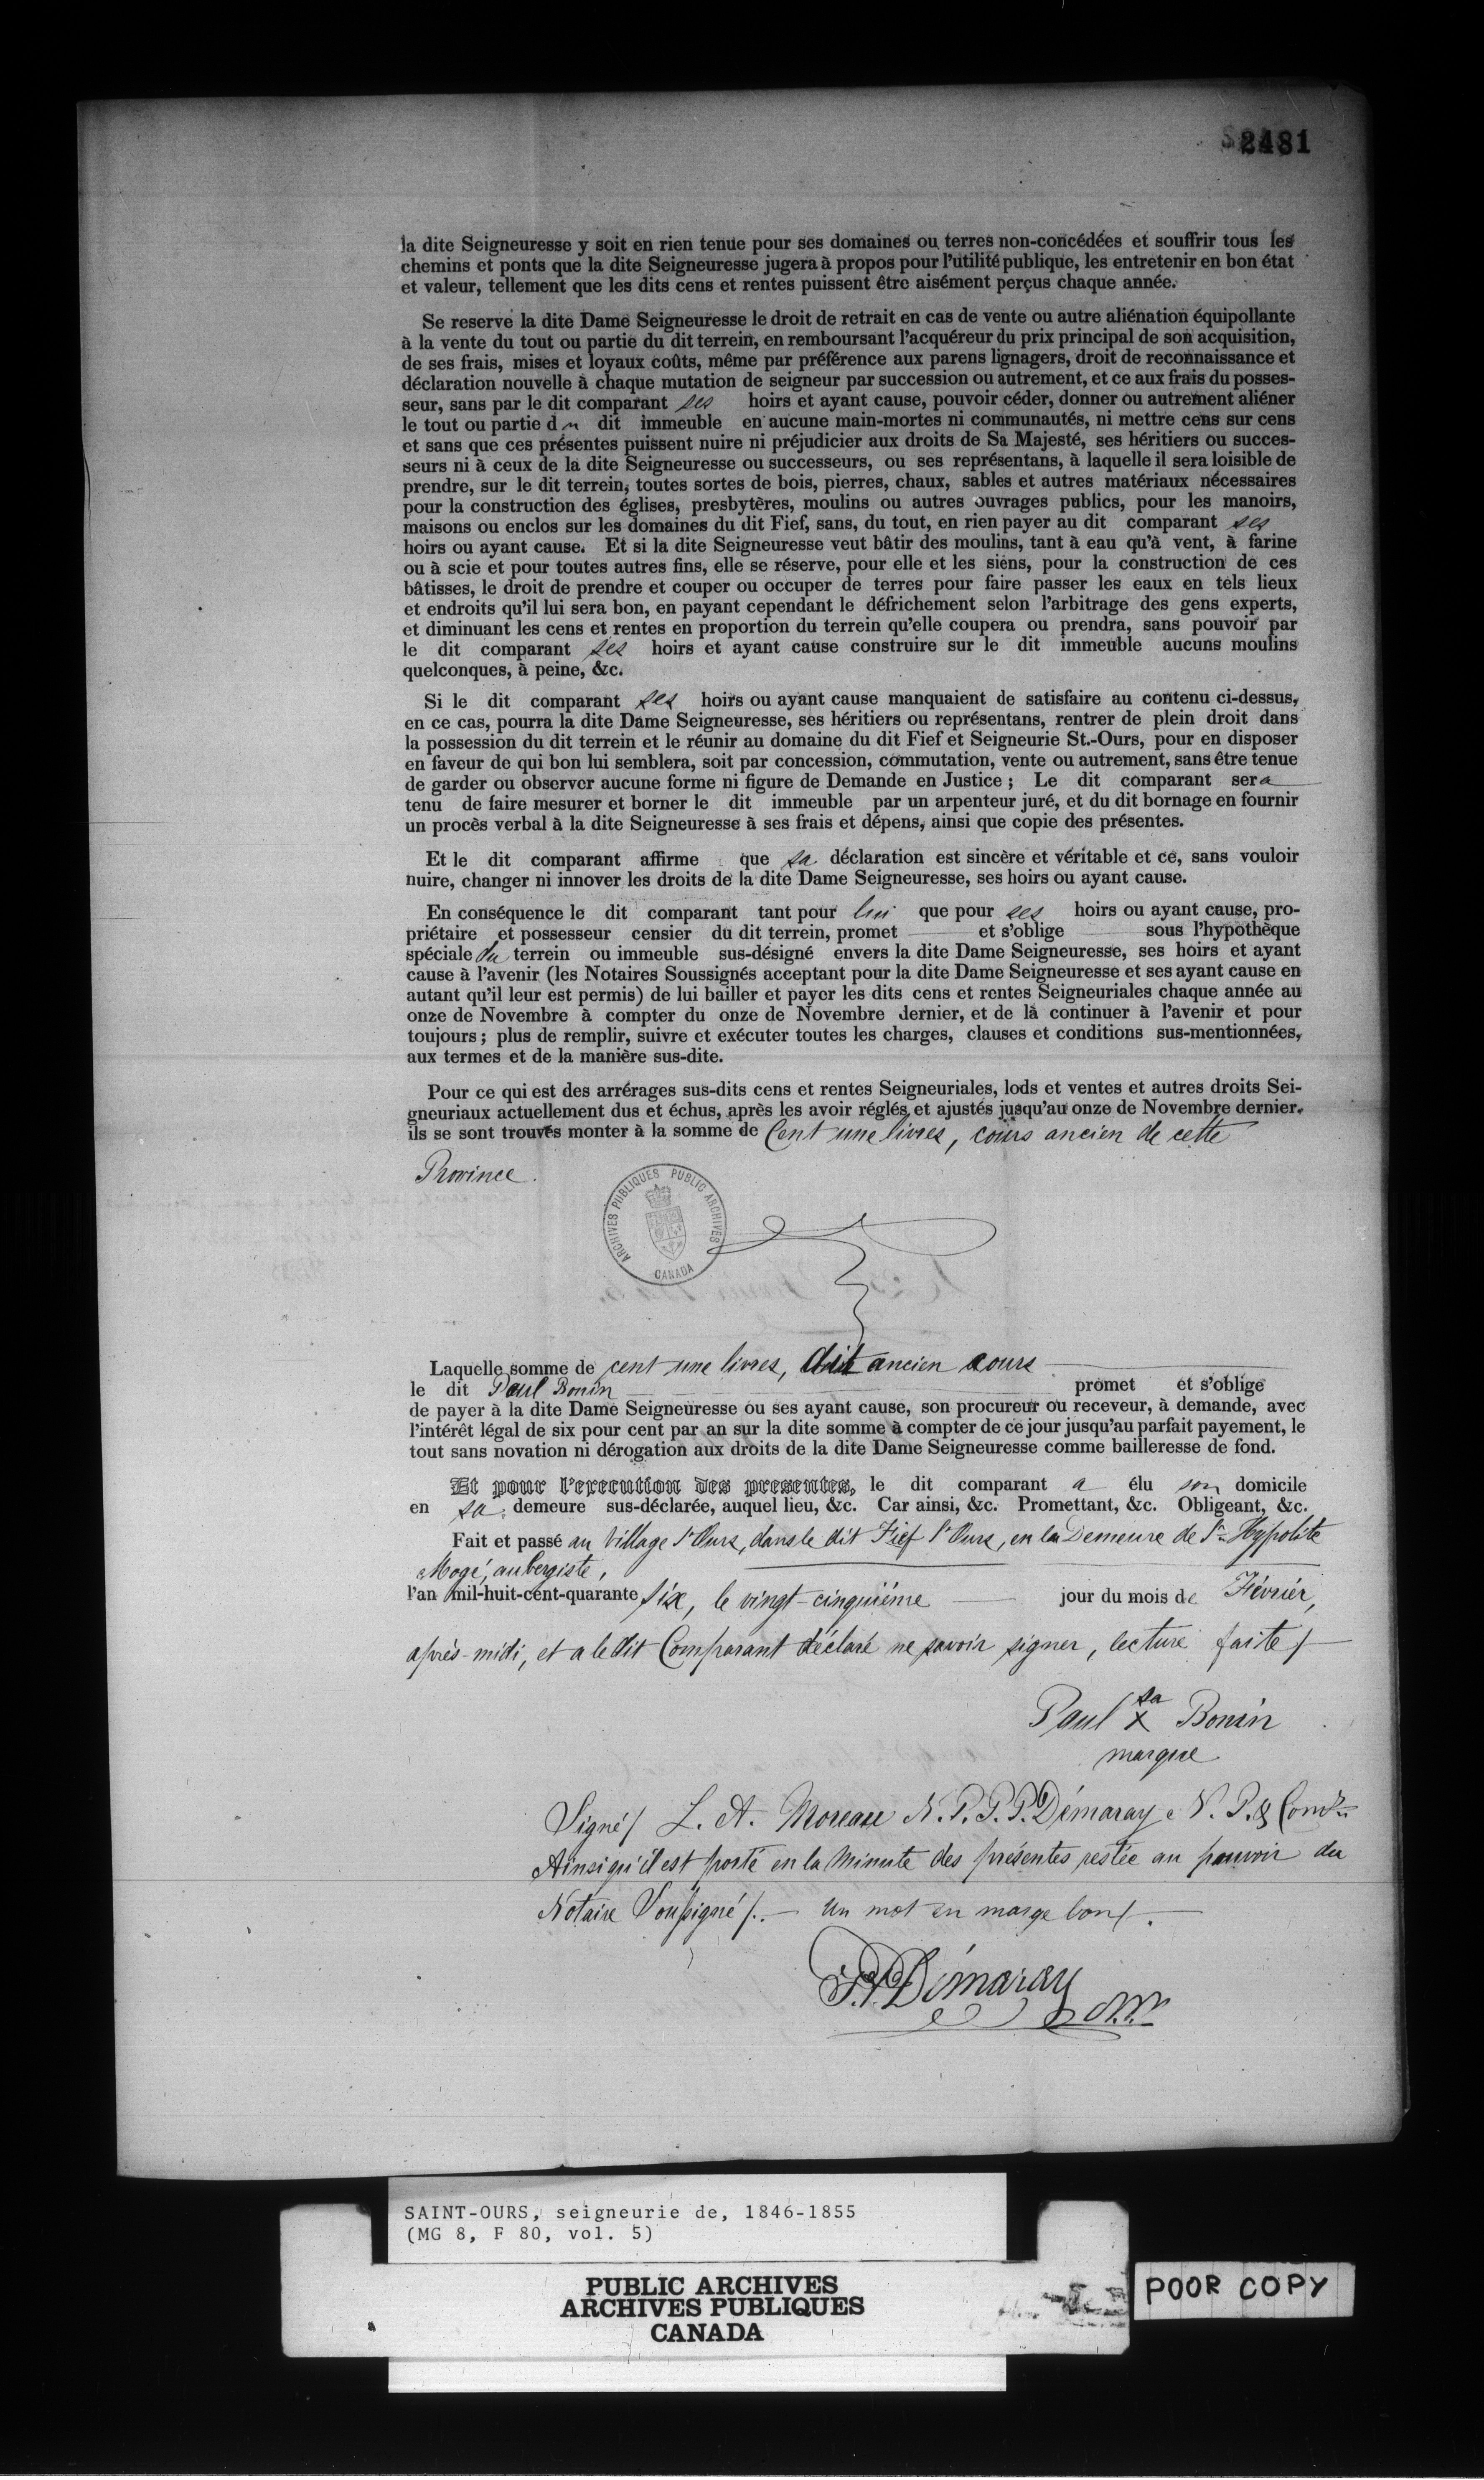 2481
la dite Seigneuresse y soit en rien tenue pour ses domaines ou terres non-concédées et souffrir tous les
chemins et ponts que la dite Seigneuresse jugera à propos pour l'utilité publique, les entretenir en bon état
et valeur, tellement que les dits cens et rentes puissent être aisément perçus chaque année.
Se reserve la dite Dame Seigneuresse le droit de retrait en cas de vente ou autre aliénation équipollante
à la vente du tout ou partie du dit terrein, en remboursant l'acquéreur du prix principal de son acquisition,
de ses frais, mises et loyaux coûts, même par préférence aux parens lignagers, droit de reconnaissance et
déclaration nouvelle à chaque mutation de seigneur par succession ou autrement, et ce aux frais du posses-
seur, sans par le dit comparant ses hoirs et ayant cause, pouvoir céder, donner ou autrement aliéner
le tout ou partie du dit immeuble en aucune main-mortes ni communautés, ni mettre cens sur cens
et sans que ces présentes puissent nuire ni préjudicier aux droits de Sa Majesté, ses héritiers ou succes-
seurs ni à ceux de la dite Seigneuresse ou successeurs, ou ses représentans, à laquelle il sera loisible de
prendre, sur le dit terrein, toutes sortes de bois, pierres, chaux, sables et autres matériaux nécessaires
pour la construction des églises, presbytères, moulins ou autres ouvrages publics, pour les manoirs,
maisons ou enclos sur les domaines du dit Fief, sans, du tout, en rien payer au dit comparant ses
hoirs ou ayant cause. Et si la dite Seigneuresse veut bâtir des moulins, tant à eau qu'à vent, à farine
ou à scie et pour toutes autres fins, elle se réserve, pour elle et les siens, pour la construction de ces
bâtisses, le droit de prendre et couper ou occuper de terres pour faire passer les eaux en tels lieux
et endroits qu'il lui sera bon, en payant cependant le défrichement selon l'arbitrage des gens experts,
et diminuant les cens et rentes en proportion du terrein qu'elle coupera ou prendra, sans pouvoir par
le dit comparant ses hoirs et ayant cause construire sur le dit immeuble aucuns moulins
quelconques, à peine, &c.
Si le dit comparant ses hoirs ou ayant cause manquaient de satisfaire au contenu ci-dessus,
en ce cas, pourra la dite Dame Seigneuresse, ses héritiers ou représentans, rentrer de plein droit dans
la possession du dit terrein et le réunir au domaine du dit Fief et Seigneurie St.-Ours, pour en disposer
en faveur de qui bon lui semblera, soit par concession, commutation, vente ou autrement, sans être tenue
de garder ou observer aucune forme ni figure de Demande en Justice ; Le dit comparant sera
tenu de faire mesurer et borner le dit immeuble par un arpenteur juré, et du dit bornage en fournir
un procès verbal à la dite Seigneuresse à ses frais et dépens, ainsi que copie des présentes.
Et le dit comparant affirme que sa déclaration est sincère et véritable et ce, sans vouloir
nuire, changer ni innover les droits de la dite Dame Seigneuresse, ses hoirs ou ayant cause.
En conséquence le dit comparant tant pour lui que pour ses hoirs ou ayant cause, pro-
priétaire et possesseur censier du dit terrein, promet et s'oblige sous l'hypothèque
spéciale du terrein ou immeuble sus-désigné envers la dite Dame Seigneuresse, ses hoirs et ayant
cause à l'avenir (les Notaires Soussignés acceptant pour la dite Dame Seigneuresse et ses ayant cause en
autant qu'il leur est permis) de lui bailler et payer les dits cens et rentes Seigneuriales chaque année au
onze de Novembre à compter du onze de Novembre dernier, et de là continuer à l'avenir et pour
toujours ; plus de remplir, suivre et exécuter toutes les charges, clauses et conditions sus-mentionnées,
aux termes et de la manière sus-dite.
Pour ce qui est des arrérages sus-dits cens et rentes Seigneuriales, lods et ventes et autres droits Sei-
gneuriaux actuellement dus et échus, après les avoir réglés et ajustés jusqu'au onze de Novembre dernier.
ils se sont trouvés monter à la somme de Cent une livres, cours ancien de cette
Province.
ARCHIVES PUBLIQUES PUBLIC ARCHIVES
CANADA
Laquelle somme de cent une livres, dit ancien cours
le dit Paul Bonin promet et s'oblige
de payer à la dite Dame Seigneuresse ou ses ayant cause, son procureur ou receveur, à demande, avec
l'intérêt légal de six pour cent par an sur la dite somme à compter de ce jour jusqu'au parfait payement, le
tout sans novation ni dérogation aux droits de la dite Dame Seigneuresse comme bailleresse de fond.
Et pour l'execution des presentes, le dit comparant a élu son domicile
en sa demeure sus-déclarée, auquel lieu, &c. Car ainsi, &c. Promettant, &c. Obligeant, &c.
Fait et passé au Village St Ours, dans le dit Fief St Ours, en la Demeure de Sr. Hypolite
Mogé, aubergiste,
l'an mil-huit-cent-quarante six, le vingt-cinquième jour du mois de Février,
après-midi, et a le dit Comparant déclaré ne savoir signer, lecture faite /
sa
Paul X Bonin
marque
Signé / L. A. Moreau N. P. P. P. Démaray N. P. &
Ainsi qu'il est porté en la Minute des présentes restée au pouvoir du
Notaire Soussigné /. — Un mot en marge bon /.
P. P. Démaray N.P.
SAINT-OURS, seigneurie de, 1846-1855
(MG 8, F 80, vol. 5)
PUBLIC ARCHIVES
ARCHIVES PUBLIQUES
CANADA
POOR COPY